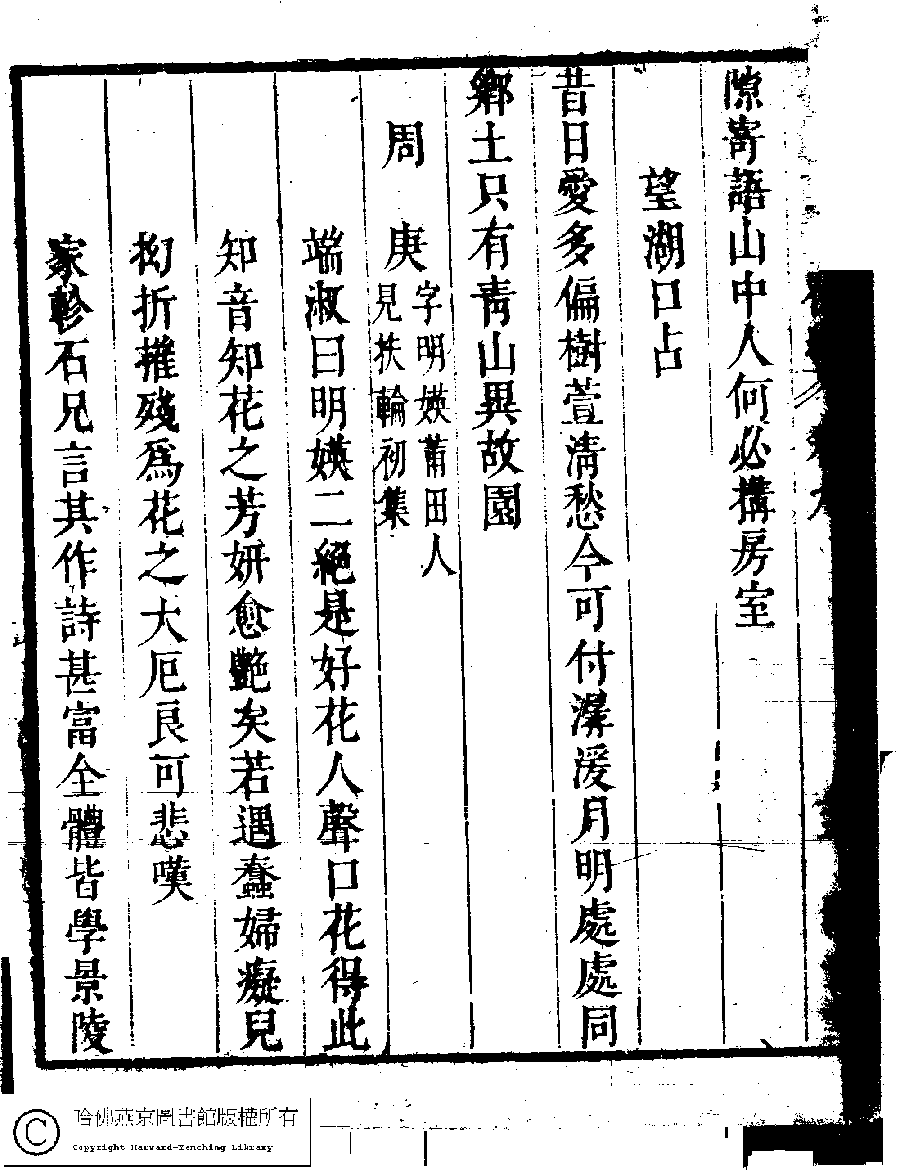 隙寄語山中人何必搆房室
望湖口占
昔日愛多偏樹萱清愁今可付潺湲月明處處同
鄉土只有靑山異故園
周　庚
字明媖莆田人
見扶輪初集
端淑曰明媖二絕是好花人聲口花得此
知音知花之芳姸愈艷矣若遇蠢婦癡兒
拗折摧殘爲花之大厄良可悲嘆
家軫石兄言其作詩甚富全體皆學景陵
哈佛燕京圖書館版權所有
Copyright Harvard-Yenching Library